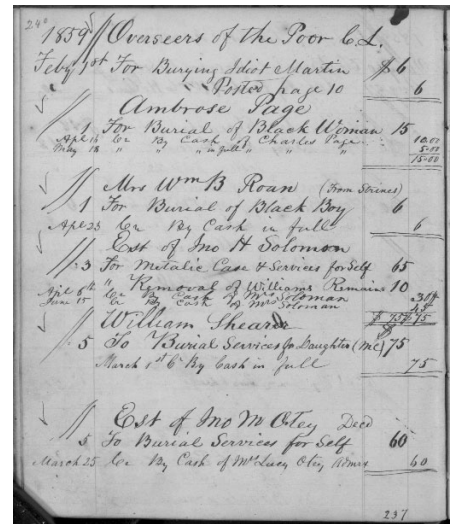 240
1859 // Overseers of the Poor C. L.
Feby 1st For Burying Idiot Martin $6
Posted page 10 6
Ambrose Page
// 1 For Burial of Black Woman 15
Apl 16 Cr By Cash of Charles Page 10.00
May 18 " " " in full " " 5.00
15.00
// Mrs Wm B Roan (From Strines)
1 For Burial of Black Boy 6
Apl 23 Cr By Cash in full 6
Est of Jno H Solomon
// 3 For Metalic Case & Services for Self 65
" Removal of Williams Remains 10
Apl 8th Cr By Cash of Mrs Solomon 30
June 15 Cr By Cash of Mrs Solomon 45
$75 75
// William Shearer
5 To Burial Services for Daughter (MC) 75
March 1st Cr By Cash in full 75
// Est of Jno M Otey Decd
5 To Burial Services for Self 60
March 25 Cr By Cash of Mrs Lucy Otey Admrx 60
237